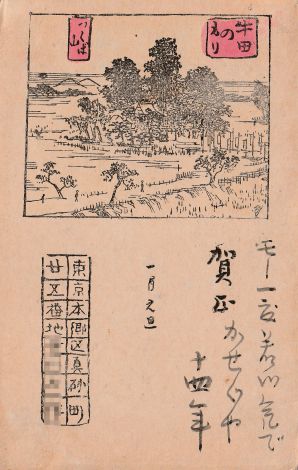 牛田
のもり
つくば
山
モー一度若い気で
賀正 かせがや
十四年
一月元旦
東京本郷区真砂町
廿五番地